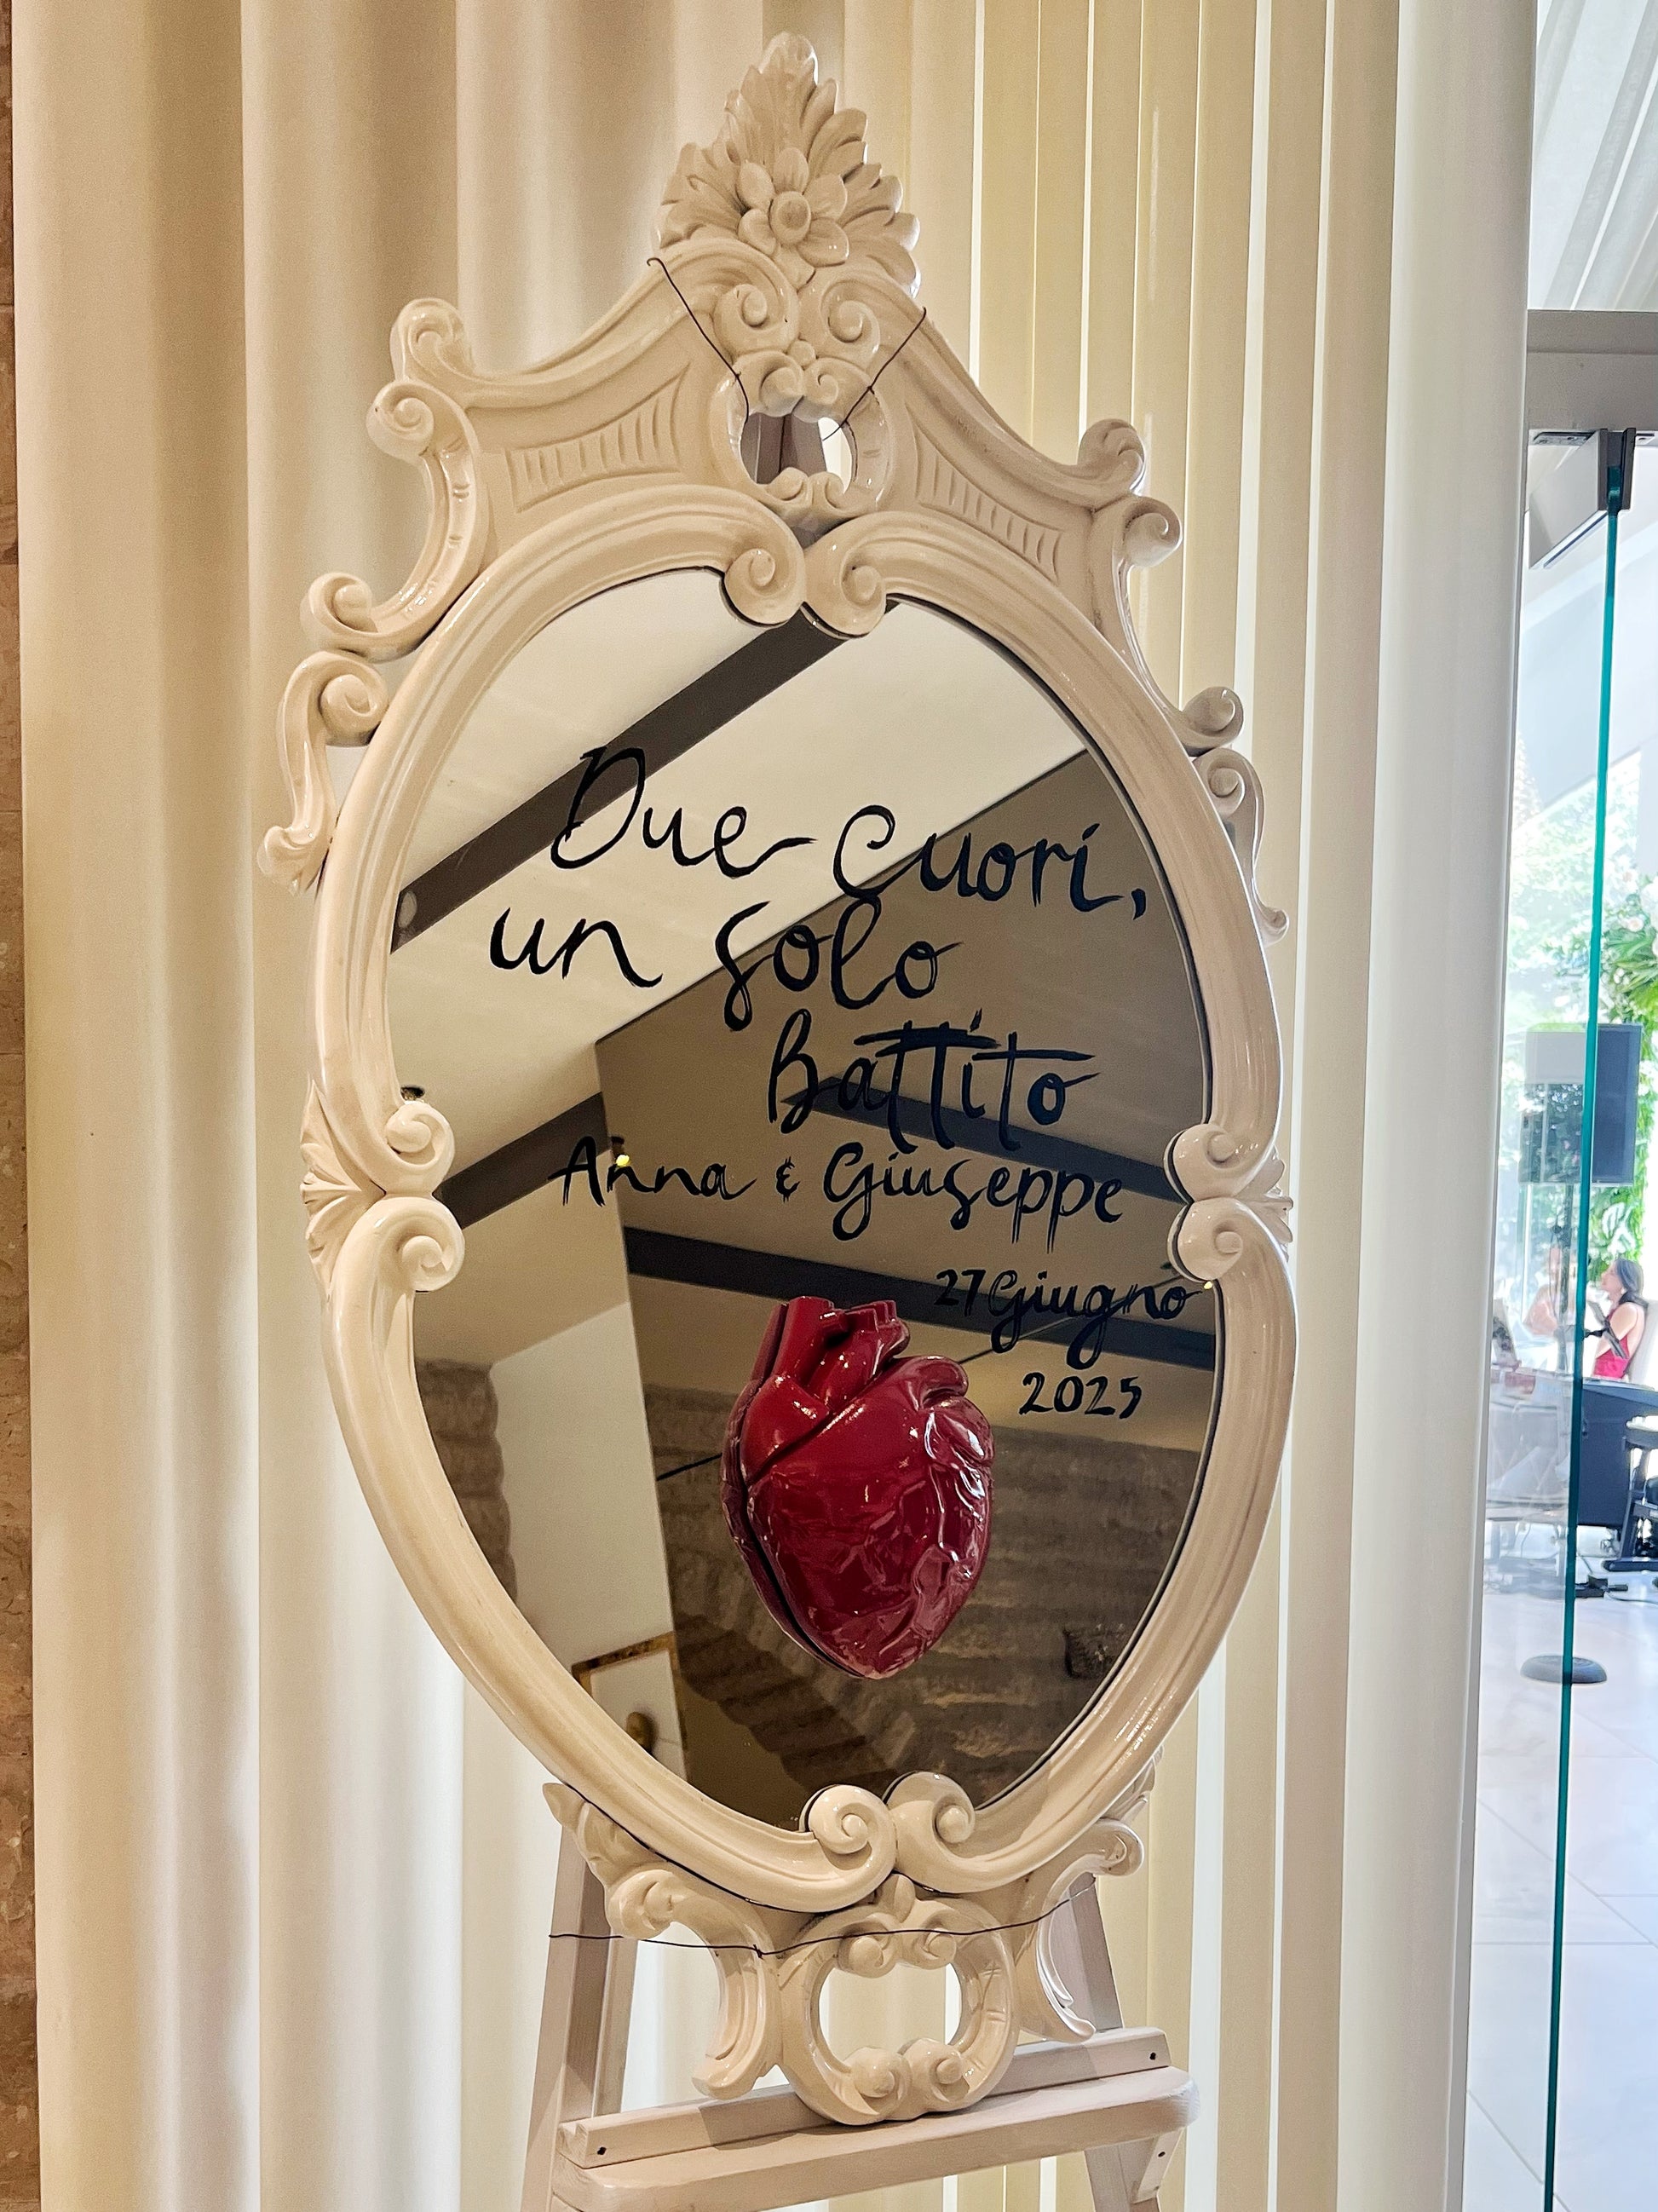 Due Cuori,
un solo
Battito
Anna & Giuseppe
27 Giugno
2025